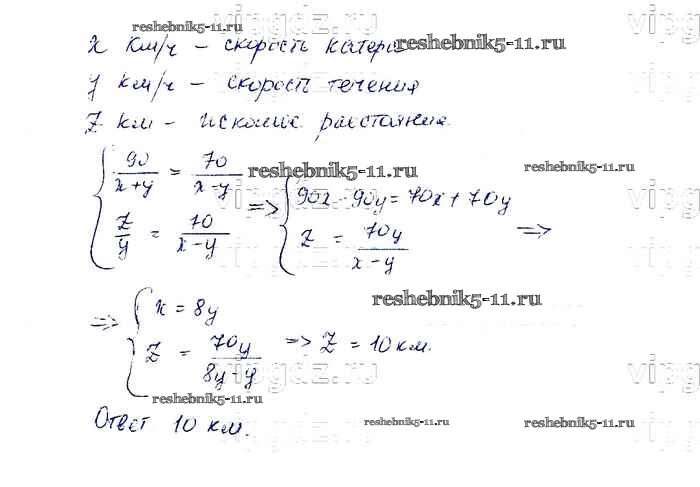 reshebnik5-11.ru
x км/ч – скорость катера
reshebnik5-11.ru
y км/ч – скорость течения
z км – искомое расстояние
reshebnik5-11.ru
reshebnik5-11.ru
{ 90/(x+y) = 70/(x-y) => { 90x - 90y = 70x + 70y
z/y = 70/(x-y) z = 70y/(x-y) =>
reshebnik5-11.ru
=> { x = 8y
z = 70y/(8y-y) => z = 10 км.
reshebnik5-11.ru
Ответ 10 км.
reshebnik5-11.ru
reshebnik5-11.ru
vipgdz.ru